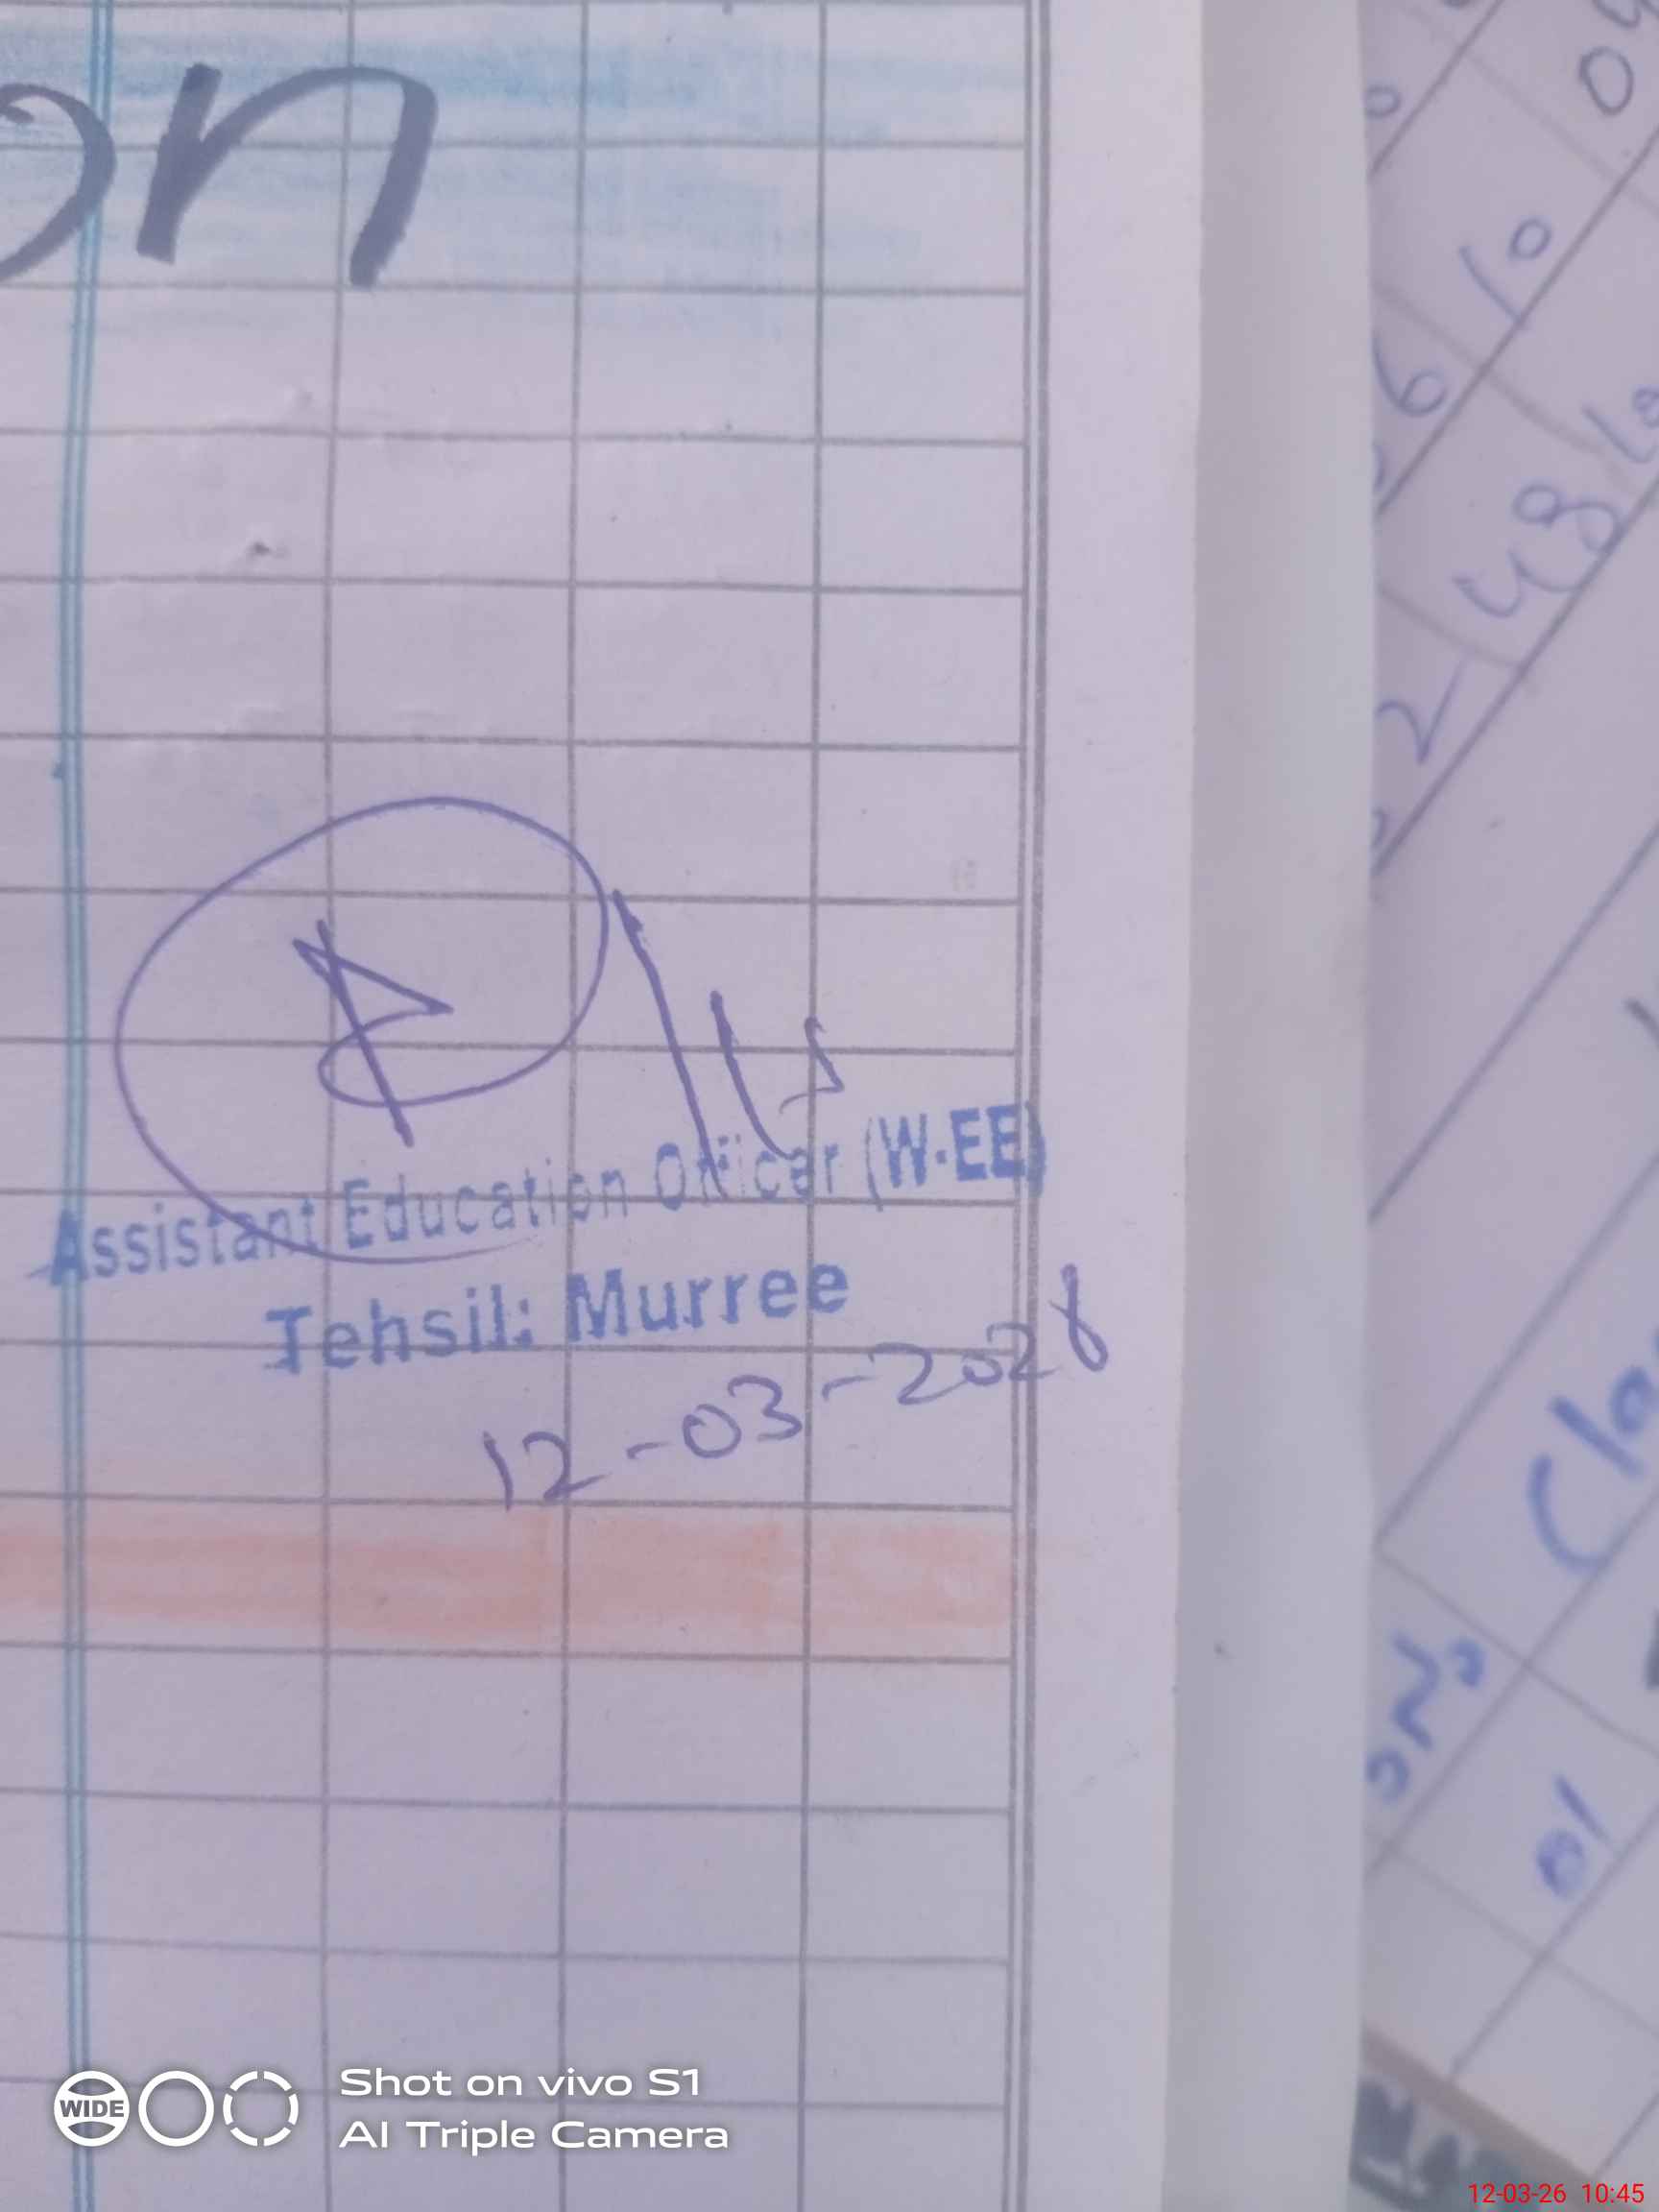 on
Assistant Education Officer (W-EE)
Tehsil: Murree
12-03-2026
10
6 10
2 48 10
Cla
01
WIDE
Shot on vivo S1
AI Triple Camera
12-03-26 10:45